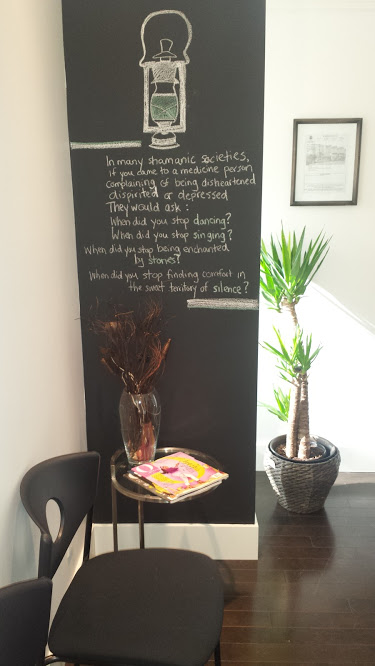 In many shamanic societies,
if you came to a medicine person
complaining of being disheartened
dispirited or depressed
They would ask :
When did you stop dancing?
When did you stop singing?
When did you stop being enchanted
by stories?
When did you stop finding comfort in
the sweet territory of silence?